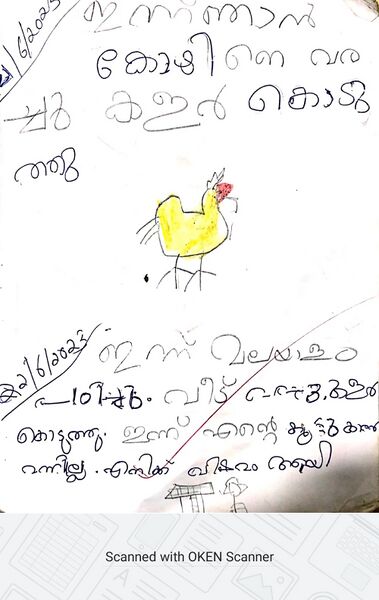 21/6/2023
ഇന്ന് ഞാൻ
കോഴിനെ വര
ച്ചു കളർ കൊടു
ത്തു
22/6/2023
ഇന്ന് മലയാളം
പഠിച്ചു. വീട്
കൊടുത്തു. ഇന്ന് എന്റെ കൂട്ടുകാരി
വന്നില്ല. എനിക്ക് വിഷമം ആയി
Scanned with OKEN Scanner